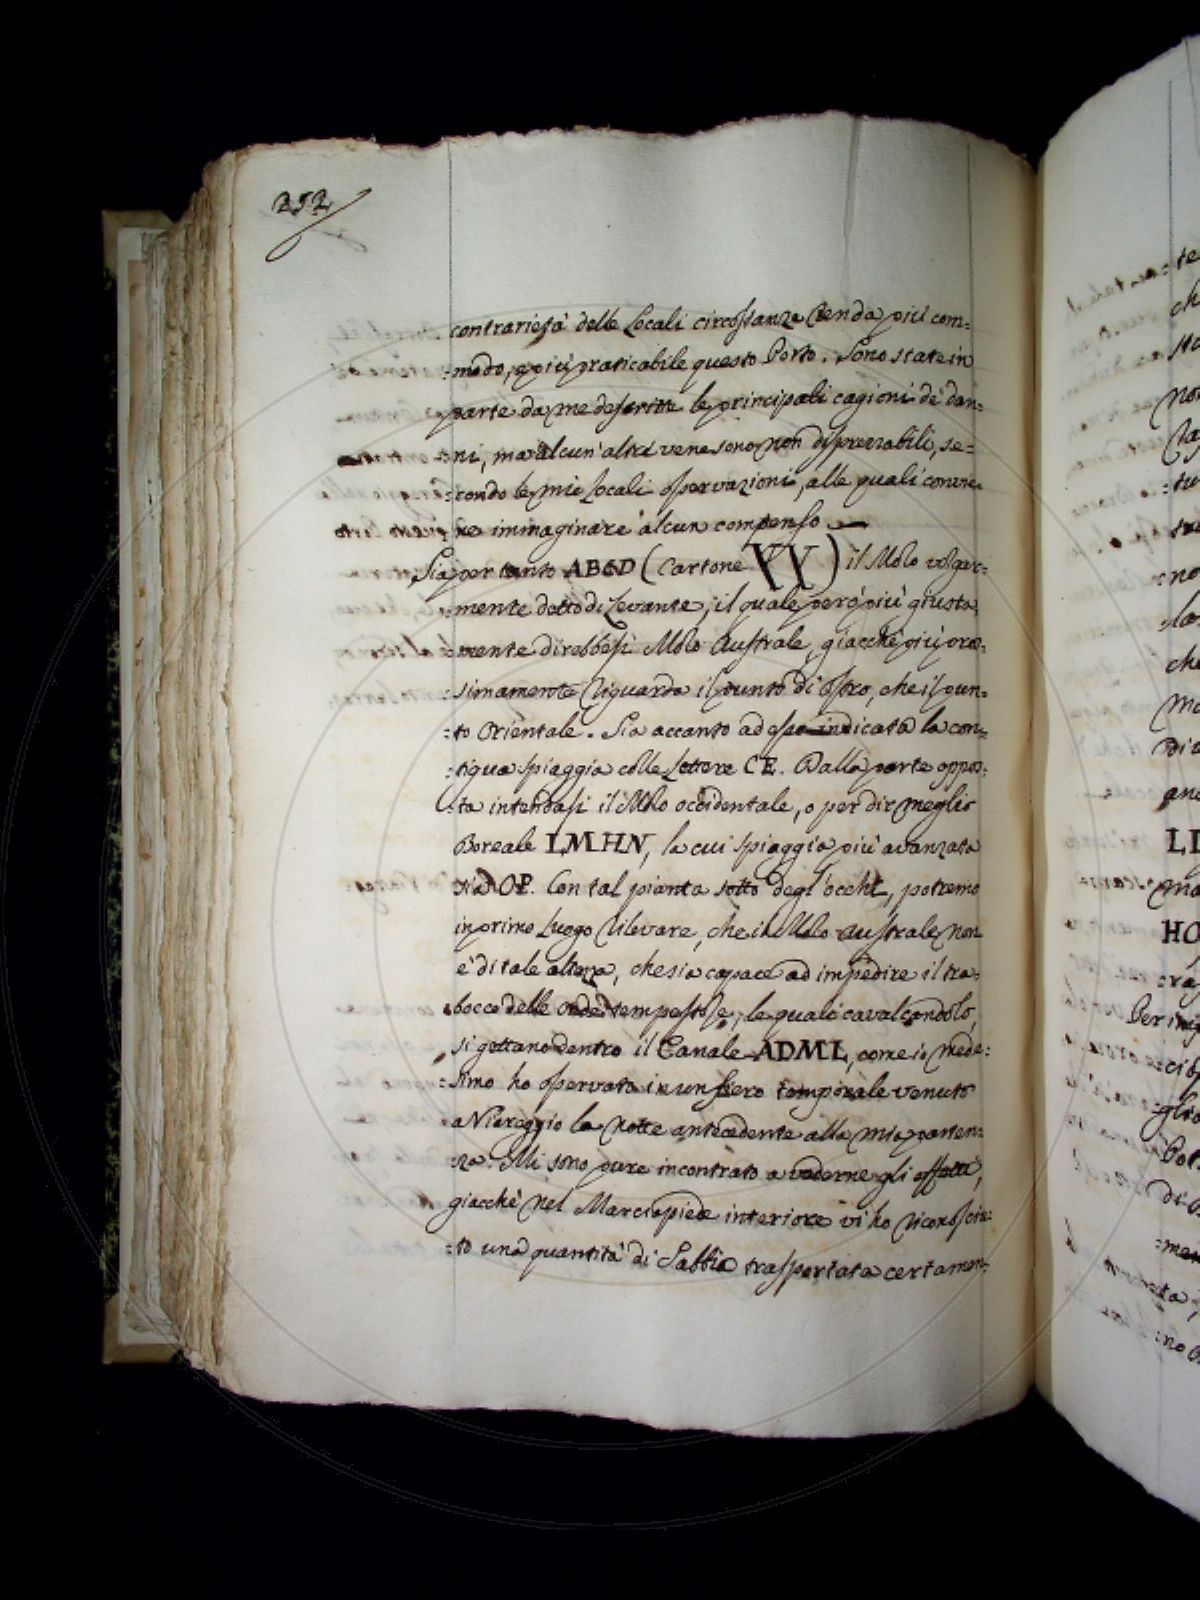 252
contrarietà delle Locali circostanze Renda più com=
:modo, e più praticabile questo Porto. Sono state in
parte da me descritte le principali cagioni de' dan=
:ni, ma alcun'altri ve ne sono non disprezzabili, se=
:condo le mie Locali osservazioni, alle quali convie=
:ne immaginare alcun compenso
Sia per tanto ABCD (Cartone XV) il Molo volgar=
:mente detto di Levante, il quale però più giusta=
:mente direbbesi Molo Australe, giacchè più pros=
:simamente Riguarda il punto di Ostro, che il pun=
:to Orientale. Sia accanto ad esso indicata la con=
:tigua spiaggia colle Lettere CE. Dalla parte oppos=
:ta intendasi il Molo occidentale, o per dir meglio
Boreale LMHN, la cui spiaggia più avanzata
sia OP. Con tal pianta sotto degl'occhi, potremo
in primo Luogo Rilevare, che il Molo Australe non
è di tale altezza, che sia capace ad impedire il tra=
:bocco delle onde tempestose, le quali cavalcandolo,
si gettano dentro il Canale ADML, come io mede=
:simo ho osservato in un fiero temporale venuto
a Viareggio la notte antecedente alla mia parten=
:za. Mi sono pure incontrato a vederne gli effetti,
giacchè nel Marciapiede interiore vi ho riconosciu=
:to una quantità di Sabbia trasportata certamen=
:te
ch
LI
HO
Per